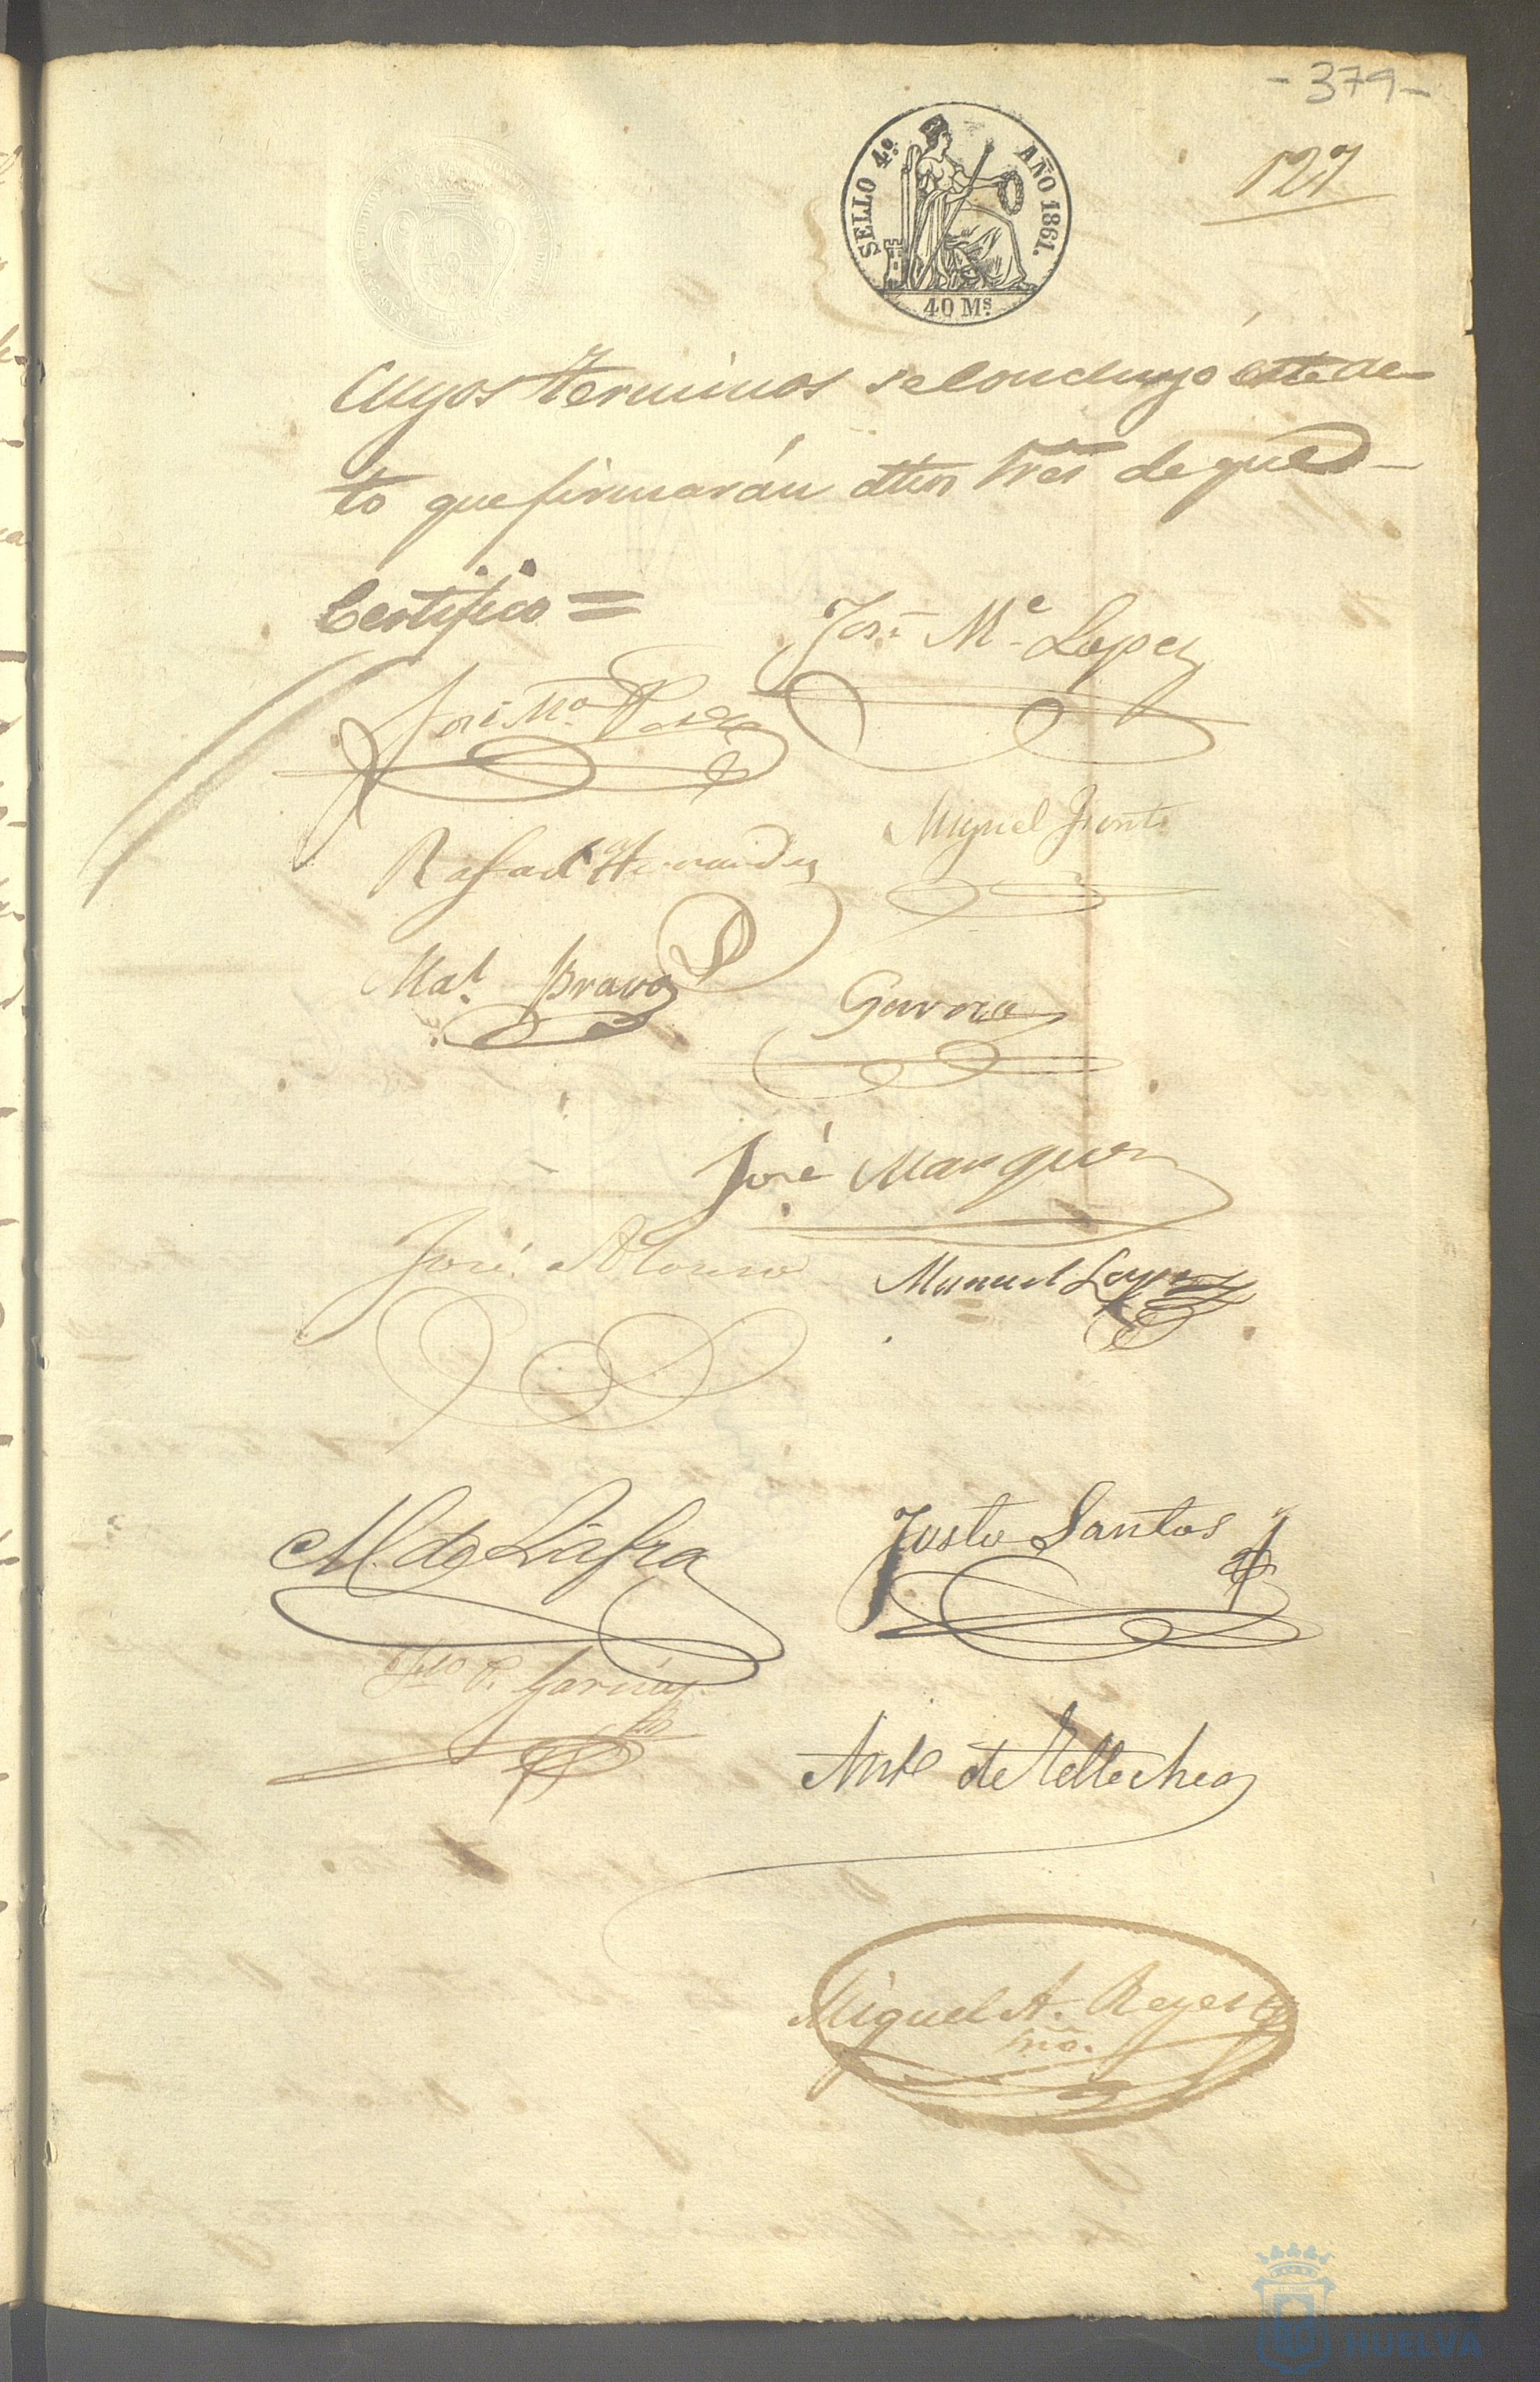 -379-
127
SELLO 4º. AÑO 1861.
40 Ms.
Cuyos terminos se concluyó este ac-
to que firmarán dhos Sres de que
Certifico =
José Mª Lopez
José Mª
Rafael Hernandez
Miguel
Mal. Bravo
José Marquez
José Alonso
Manuel Lopez
M. de
Justo Santos
Fco P. Garcia
Anto de Tellechea
Miguel A. Reyes
Srio.
HUELVA